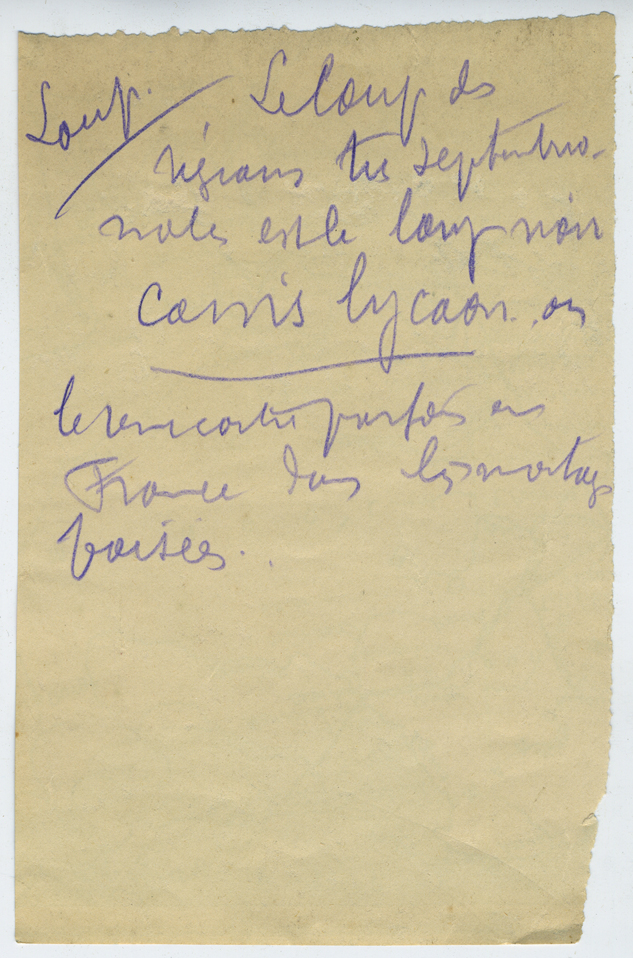 Loup. Le Loup des
régions très septentrio-
nales est le loup noir
canis lycaon. on
le rencontre parfois en
France dans les montags
boisées.